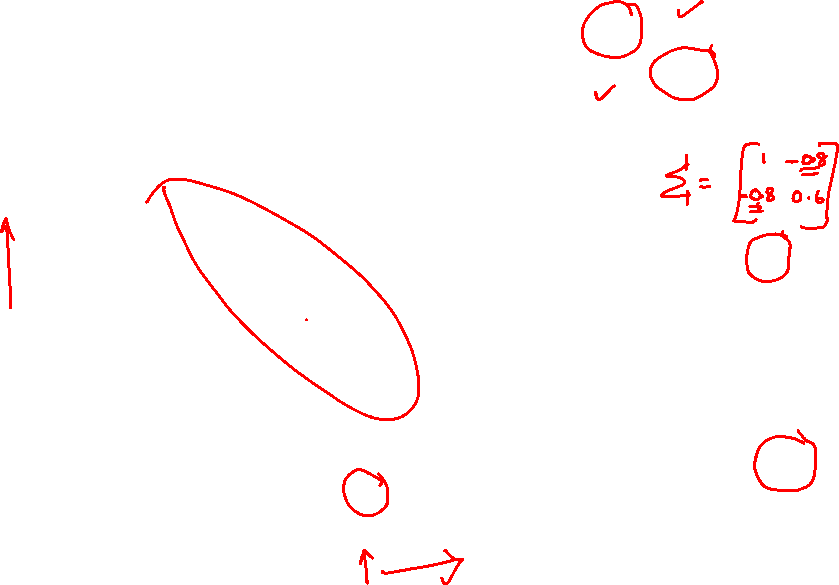 Σ = [ 1 -0.8
-0.8 0.6 ]